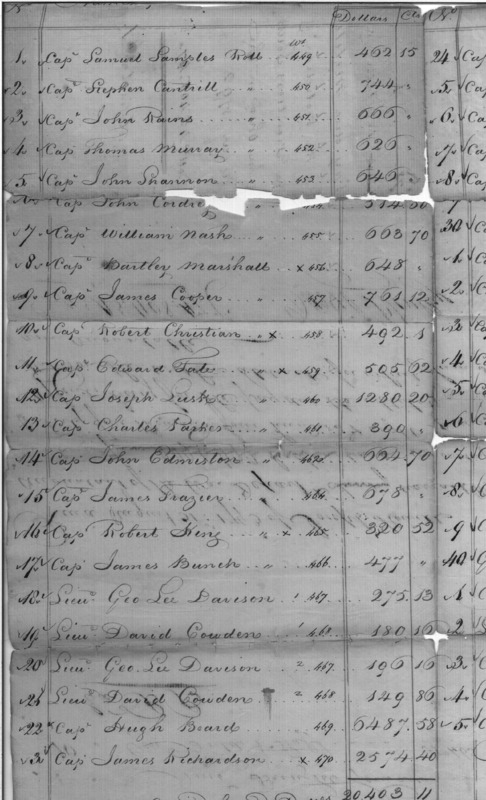 No. Dollars Cts No.
1 Capt Samuel Samples Roll 449 462 15 24 Cap
2 Capt Stephen Cantrill " 450 744 " 5 Cap
3 Capt John Rains " 451 666 " 6 Cap
4 Capt Thomas Murray " 452 626 " 7 Cap
5 Capt John Shannon " 453 646 " 8 Cap
Capt John
7 Capt William Nash " 455 663 70 30 Ca
8 Capt Bartley Marshall x 456 648 " 1 Ca
9 Capt James Cooper " 457 761 12 2 Ca
10 Capt Robert Christian " x 458 492 1 3 Ca
11 Capt Edward Tate " x 459 505 62 4 Ca
12 Capt Joseph Lusk " 460 1280 20 5 Ca
13 Capt Charles Parker " 461 390 " 6 Ca
14 Capt John Edmiston " 462 694 70 7 C
15 Capt James Frazier " 464 678 " 8 C
16 Capt Robert King " x 465 320 52 9 C
17 Capt James Bunch " 466 477 " 40
18 Lieut Geo Lee Davison " 467 275 13 1 C
19 Lieut David Cowden " 468 180 16 2
20 Lieut Geo. Lee Davison " 467 196 16 3 C
21 Lieut David Cowden " 468 149 86 4 C
22 Capt Hugh Beard 469 6487 58 5 C
3 Capt James Richardson x 470 2574 40
20.403 11